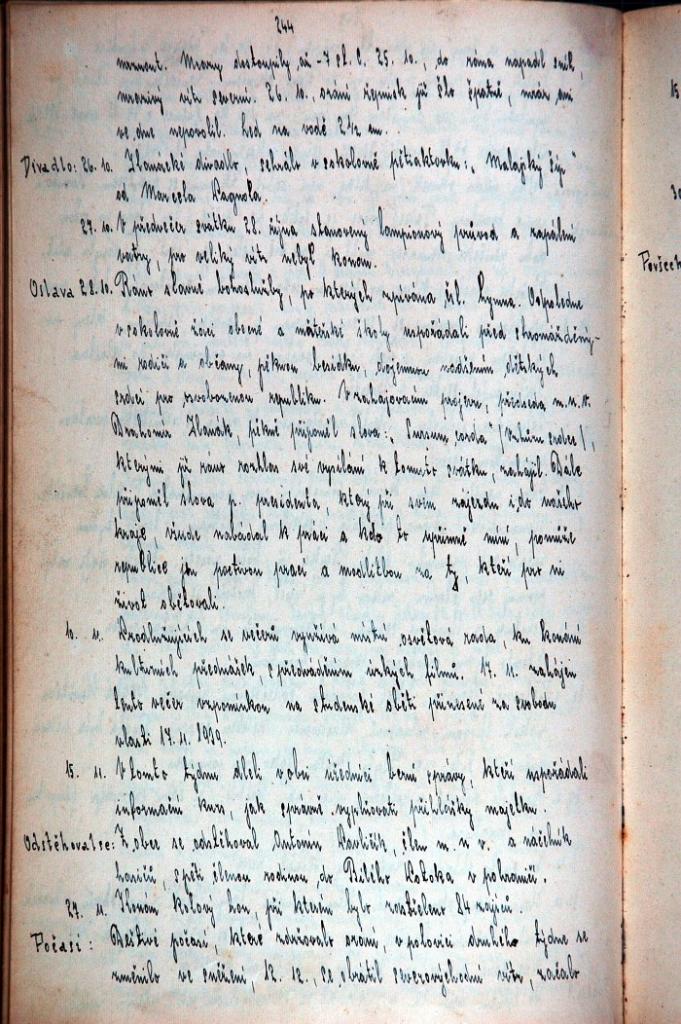 244
mrznout. Mrazy dostoupily až -7 st. C. 25. 10., do rána napadl sníh,
mrazivý vítr severní. 26. 10., orání řepnisk již šlo špatně, mráz ani
ve dne nepovolil. Led na vodě 2½ cm.
Divadlo: 26. 10. Hanácké divadlo, sehrálo v sokolovně pětiaktovku: „Malajský šíp“
od Marcela Pagnola.
27. 10. V předvečer svátku 28. října stanovený lampionový průvod a zapálení
vatry, pro veliký vítr nebyl konán.
Oslava 28. 10. Ráno slavné bohoslužby, po kterých zpívána čsl. hymna. Odpoledne
v sokolovně žáci obecné a mateřské školy uspořádali před shromážděný-
mi rodiči a občany, pěknou besídku, dojemnou nadšením dětských
srdcí pro osvobozenou republiku. V zahajovacím projevu, předseda m. n. v.
Drahomír Hanák, pěkně připoměl slova: „Sursum corda“ (Vzhůru srdce),
kterými již ráno rozhlas své vysílání k tomuto svátku, zahájil. Dále
připoměl slova p. presidenta, který při svém zájezdu i do našeho
kraje, všude nabádal k práci a kdo to upřímně míní, pomůže
republice jen poctivou prací a modlitbou za ty, kteří pro ni
život obětovali.
10. 11. Prodlužujících se večerů využívá místní osvětová rada, ku konání
kulturních přednášek, s předváděním úzkých filmů. 17. 11. zahájen
tento večer vzpomínkou na studenské oběti přinesené za svobodu
vlasti 17. 11. 1939.
15. 11. V tomto týdnu dleli v obci úředníci berní správy, kteří uspořádali
informační kurs, jak správně vyplňovati přihlášky majetku.
Odstěhovalec: Z obce se odstěhoval Antonín Pavlíček, člen m. n. v. a náčelník
hasičů, s pěti člennou rodinou, do Bílého Potoka v pohraničí.
24. 11. Konán kolový hon, při kterém bylo zastřeleno 84 zajíců.
Počasí: Deštivé počasí, které zdržovalo orání, v polovici druhého týdne se
změnilo ve sněžení, 12. 12., se obrátil severovýchodní vítr, začalo
15
30
Povšech